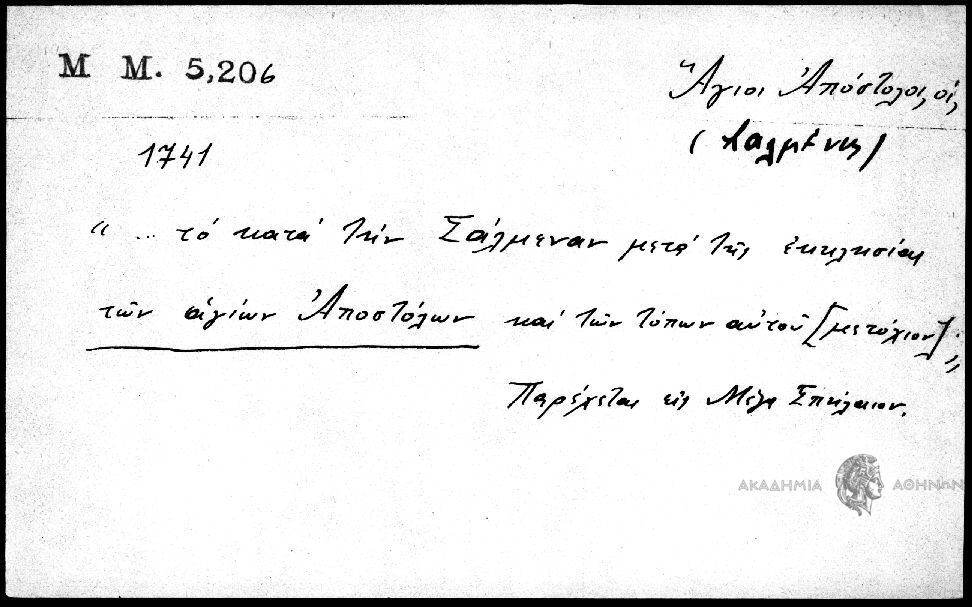 M M. 5,206
Ἅγιοι Ἀπόστολοι, οἱ,
1741
"... τό κατά τήν Σάλμεναν μετά τῆς ἐκκλησίας
τῶν ἁγίων Ἀποστόλων καί τῶν τόπων αὐτοῦ [μετόχιον]."
Παρέχεται εἰς Μέγα Σπήλαιον.
ΑΚΑΔΗΜΙΑ ΑΘΗΝΩΝ